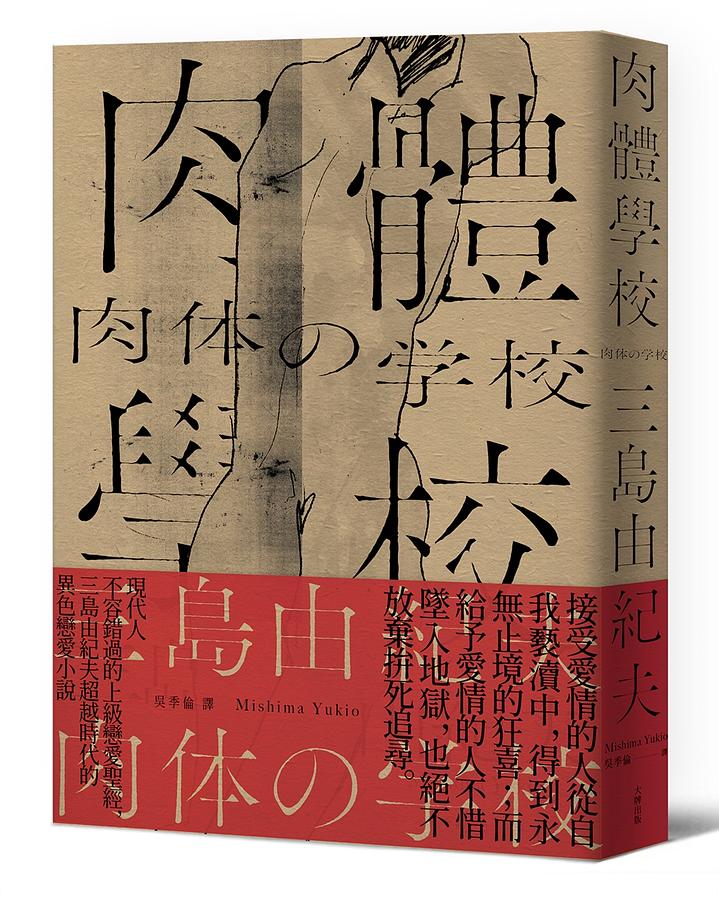 肉體
肉体の学校
學校
三島由紀夫
肉体の学校
吳季倫 譯 Mishima Yukio
接受愛情的人從自
我褻瀆中,得到永
無止境的狂喜;而
給予愛情的人不惜
墜入地獄,也絕不
放棄拚死追尋。
現代人
不容錯過的上級戀愛聖經,
三島由紀夫超越時代的
異色戀愛小說
肉體學校
肉体の学校
三島由紀夫
Mishima Yukio
吳季倫 譯
大牌出版